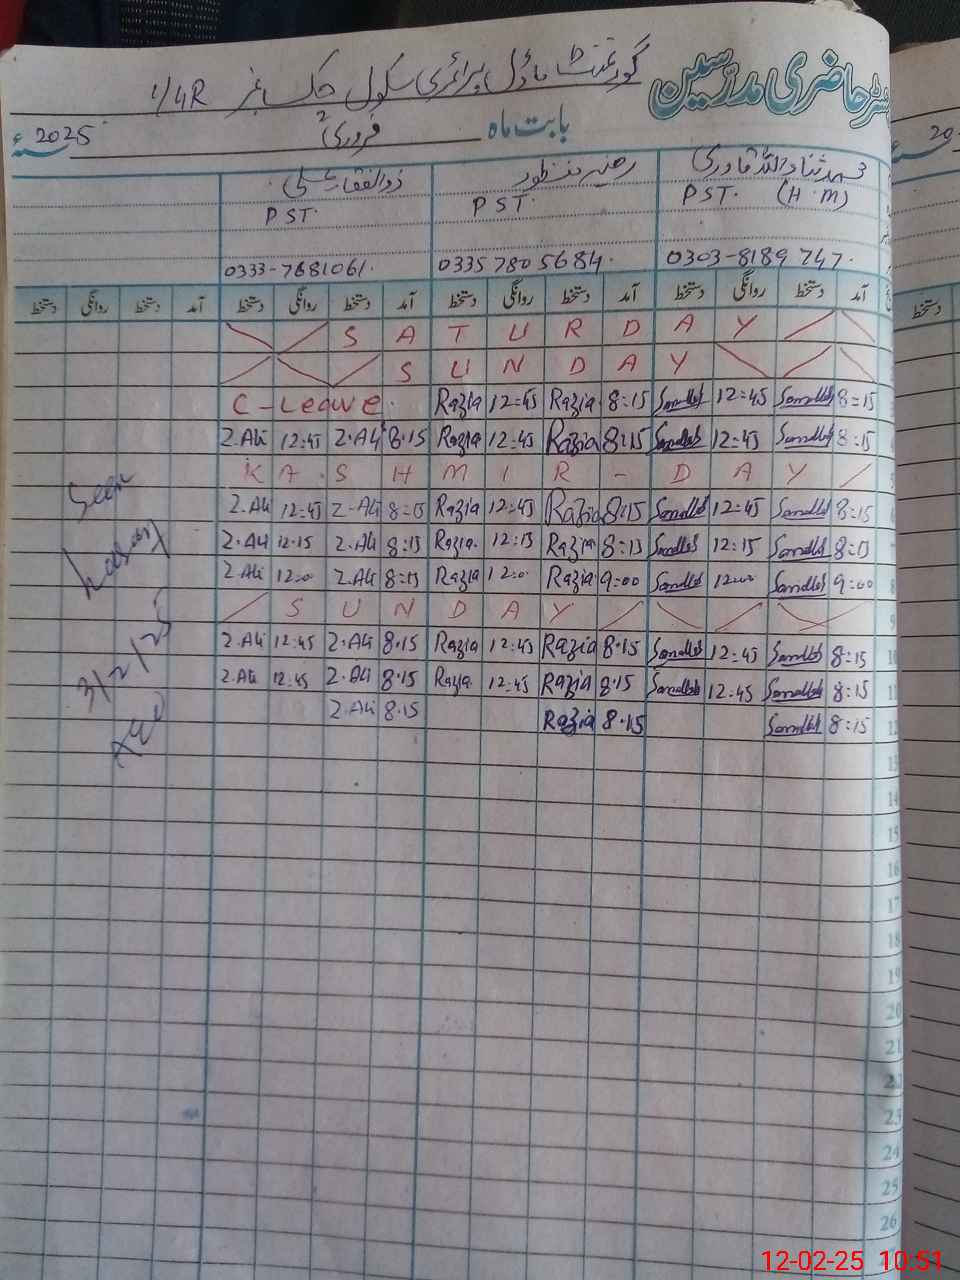 رجسٹر حاضری مدرسین
گورنمنٹ ماڈل پرائمری سکول چک نمبر 1/4R
بابت ماہ فروری 2 2025 سنہ ء
محمد ثناء اللہ قادری رضیہ منظور ذوالفقار علی
PST. (H.M) PST. PST.
0303-8189747. 03357805684. 0333-7681061.
آمد دستخط روانگی دستخط آمد دستخط روانگی دستخط آمد دستخط روانگی دستخط آمد دستخط روانگی دستخط
SATURDAY
SUNDAY
C-Leave. Razia 12:45 Razia 8:15 12:45 8:15
Z.Ali 12:45 Z.Ali 8.15 Razia 12:45 Razia 8:15 12:45 8:15
KASHMIR-DAY
Z.Ali 12:45 Z-Ali 8:15 Razia 12:45 Razia 8:15 12:45 8:15 6
Z.Ali 12.15 Z.Ali 8:15 Razia. 12:15 Razia 8:15 12:15 8:15 7
Z.Ali 12:0 Z.Ali 8:15 Razia 12:0 Razia 9:00 12:00 9:00 8
SUNDAY 9
Z.Ali 12:45 Z.Ali 8.15 Razia 12:45 Razia 8.15 12:45 8:15 10
Z.Ali 12:45 Z.Ali 8.15 Razia 12:45 Razia 8.15 12:45 8:15 11
Z.Ali 8.15 Razia 8.15 8:15 12
Seen
3/2/25
13
14
15
16
17
18
19
20
21
22
23
24
25
26
20
دستخط
12-02-25 10:51